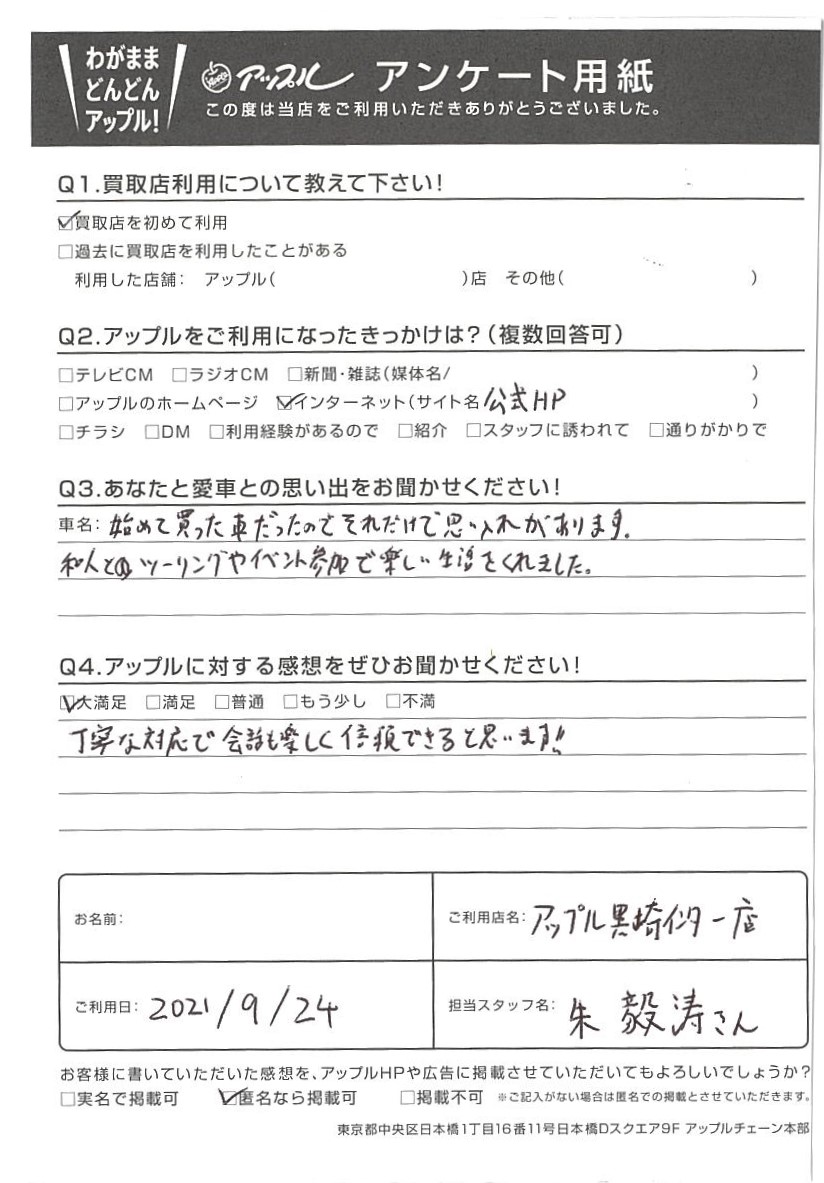 わがまま
どんどん
アップル!
アップル アンケート用紙
この度は当店をご利用いただきありがとうございました。
Q1.買取店利用について教えて下さい!
☑買取店を初めて利用
□過去に買取店を利用したことがある
利用した店舗: アップル( )店 その他( )
Q2.アップルをご利用になったきっかけは?(複数回答可)
□テレビCM □ラジオCM □新聞・雑誌(媒体名/ )
□アップルのホームページ ☑インターネット(サイト名 公式HP )
□チラシ □DM □利用経験があるので □紹介 □スタッフに誘われて □通りがかりで
Q3.あなたと愛車との思い出をお聞かせください!
車名: 始めて買った車だったのでそれだけで思い入れがあります。
和人とのツーリングやイベント参加で楽しい生活をくれました。
Q4.アップルに対する感想をぜひお聞かせください!
☑大満足 □満足 □普通 □もう少し □不満
丁寧な対応で会話も楽しく信頼できると思います!!
お名前:
ご利用店名: アップル黒埼インター店
ご利用日: 2021/9/24
担当スタッフ名: 朱 毅涛さん
お客様に書いていただいた感想を、アップルHPや広告に掲載させていただいてもよろしいでしょうか?
□実名で掲載可 ☑匿名なら掲載可 □掲載不可 ※ご記入がない場合は匿名での掲載とさせていただきます。
東京都中央区日本橋1丁目16番11号日本橋Dスクエア9F アップルチェーン本部